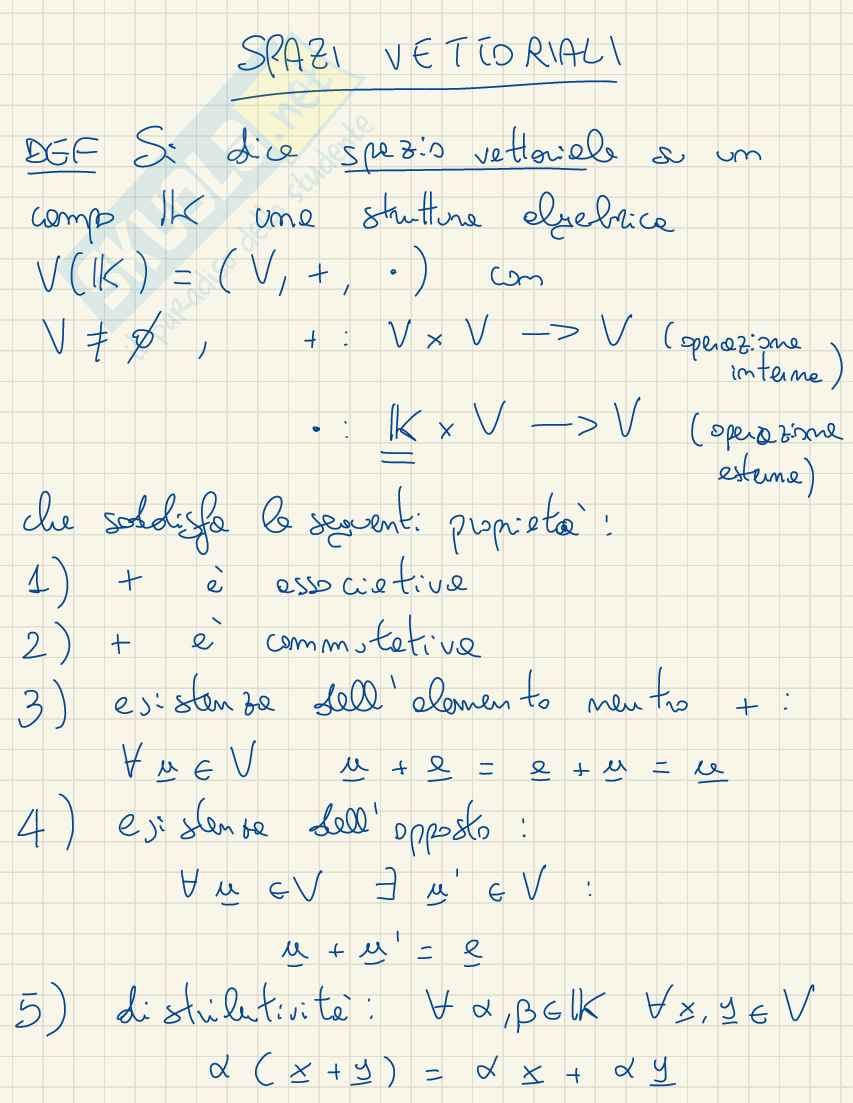 SPAZI VETTORIALI
DEF Si dice spazio vettoriale su un
campo 𝕂 una struttura algebrica
V(𝕂) = (V, +, ·) con
V ≠ ∅, + : V × V —> V (operazione
interna)
· : 𝕂 × V —> V (operazione
esterna)
che soddisfa le seguenti proprietà:
1) + è associativa
2) + è commutativa
3) esistenza dell'elemento neutro + :
∀ u ∈ V u + e = e + u = u
4) esistenza dell'opposto :
∀ u ∈ V ∃ u' ∈ V :
u + u' = e
5) distributività: ∀ α, β ∈ 𝕂 ∀ x, y ∈ V
α (x + y) = α x + α y
SKUOLA.net
il paradiso dello studente